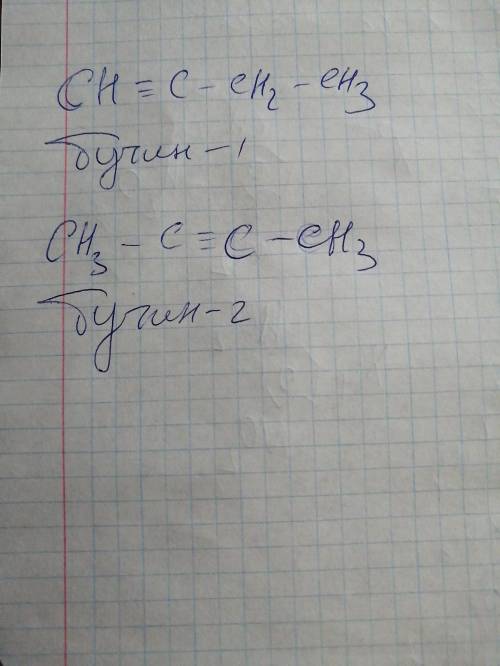 CH ≡ C - CH₂ - CH₃
Бутин - 1
CH₃ - C ≡ C - CH₃
Бутин - 2